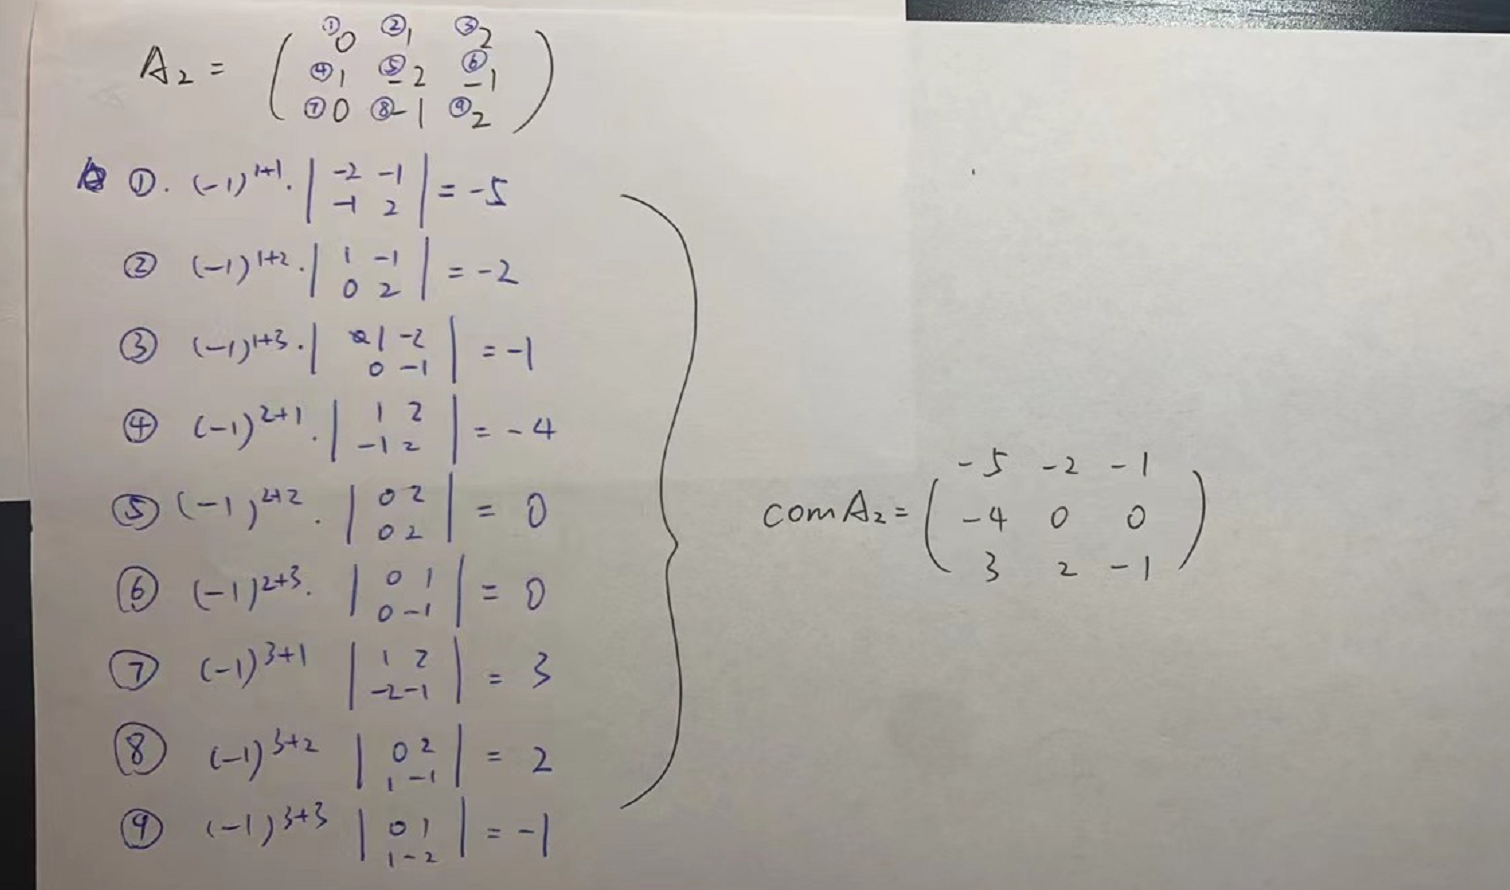 A₂ = ( ①0 ②1 ③2
④1 ⑤-2 ⑥-1
⑦0 ⑧-1 ⑨2 )
①. (-1)¹⁺¹. | -2 -1
-1 2 | = -5
② (-1)¹⁺². | 1 -1
0 2 | = -2
③ (-1)¹⁺³. | 1 -2
0 -1 | = -1
④ (-1)²⁺¹. | 1 2
-1 2 | = -4
⑤ (-1)²⁺². | 0 2
0 2 | = 0
⑥ (-1)²⁺³. | 0 1
0 -1 | = 0
⑦ (-1)³⁺¹ | 1 2
-2 -1 | = 3
⑧ (-1)³⁺² | 0 2
1 -1 | = 2
⑨ (-1)³⁺³ | 0 1
1 -2 | = -1
com A₂ = ( -5 -2 -1
-4 0 0
3 2 -1 )